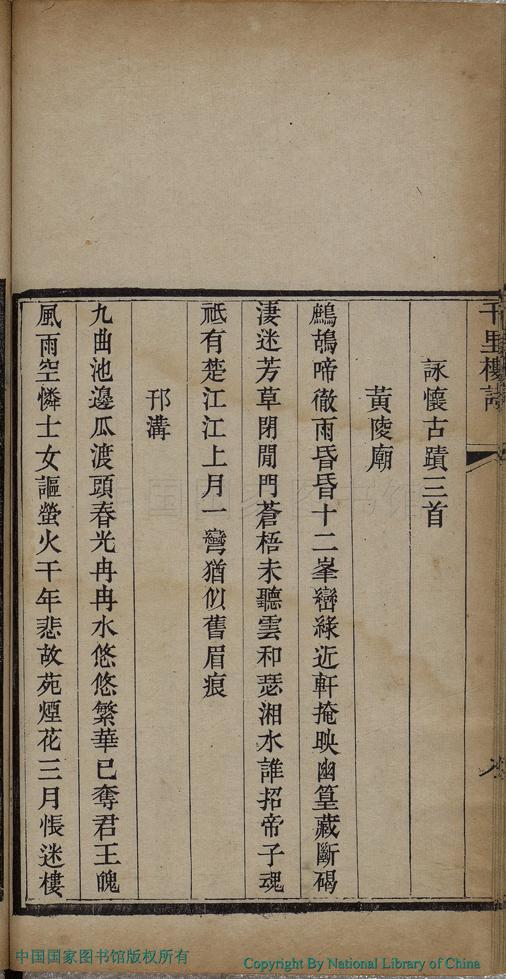 千里樓詩
詠懷古蹟三首
黃陵廟
鷓鴣啼徹雨昏昏十二峯巒綠近軒掩映幽篁藏斷碣
淒迷芳草閉閒門蒼梧未聽雲和瑟湘水誰招帝子魂
祗有楚江江上月一彎猶似舊眉痕
邗溝
九曲池邊瓜渡頭春光冉冉水悠悠繁華已奪君王魄
風雨空憐士女謳螢火千年悲故苑煙花三月悵迷樓
中国国家图书馆
中国国家图书馆版权所有
Copyright By National Library of China